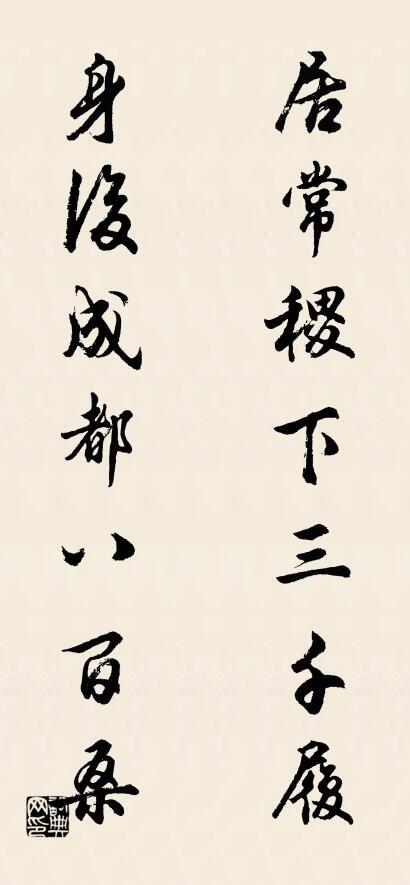 居常稷下三千履
身後成都八百桑